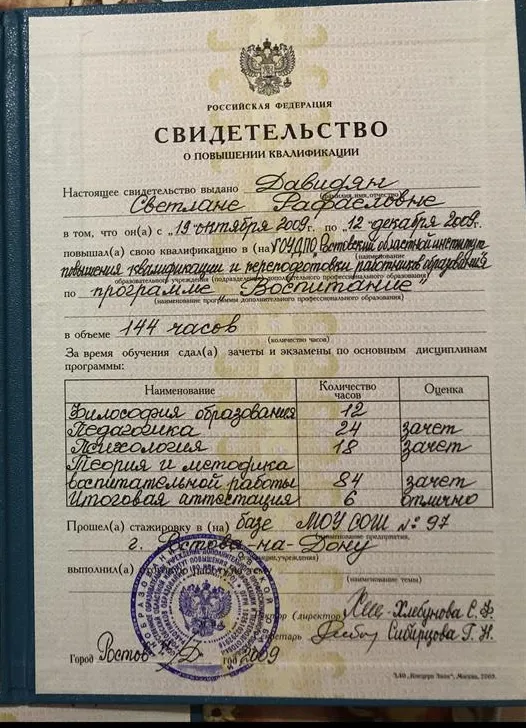 РОССИЙСКАЯ ФЕДЕРАЦИЯ
СВИДЕТЕЛЬСТВО
О ПОВЫШЕНИИ КВАЛИФИКАЦИИ
Настоящее свидетельство выдано Давидян
(фамилия, имя, отчество)
Светлане Рафаеловне
в том, что он(а) с „19 октября 2009г. по „12 декабря 2009г.
повышал(а) свою квалификацию в (на) ГОУДПО „Ростовский областной институт
(наименование
повышения квалификации и переподготовки работников образования"
образовательного учреждения (подразделения) дополнительного профессионального образования)
по программе „Воспитание"
(наименование программы дополнительного профессионального образования)
в объеме 144 часов
(количество часов)
За время обучения сдал(а) зачеты и экзамены по основным дисциплинам
программы:
Наименование Количество часов Оценка
Философия образования 12
Педагогика 24 зачет
Психология 18 зачет
Теория и методика
воспитательной работы 84 зачет
Итоговая аттестация 6 отлично
Прошел(а) стажировку в (на) базе МОУ СОШ № 97
(наименование предприятия,
г. Ростова-на-Дону
выполнил(а)
(наименование темы)
(директор) Хлебунова С.Ф.
Секретарь Сибирцова Г.Н.
Город Ростов н/Д год 2009